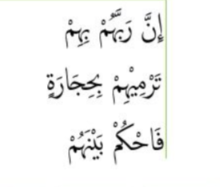 إِنَّ رَبَّهُمْ بِهِمْ
تَرْمِيْهِمْ بِحِجَارَةٍ
فَاحْكُمْ بَيْنَهُمْ